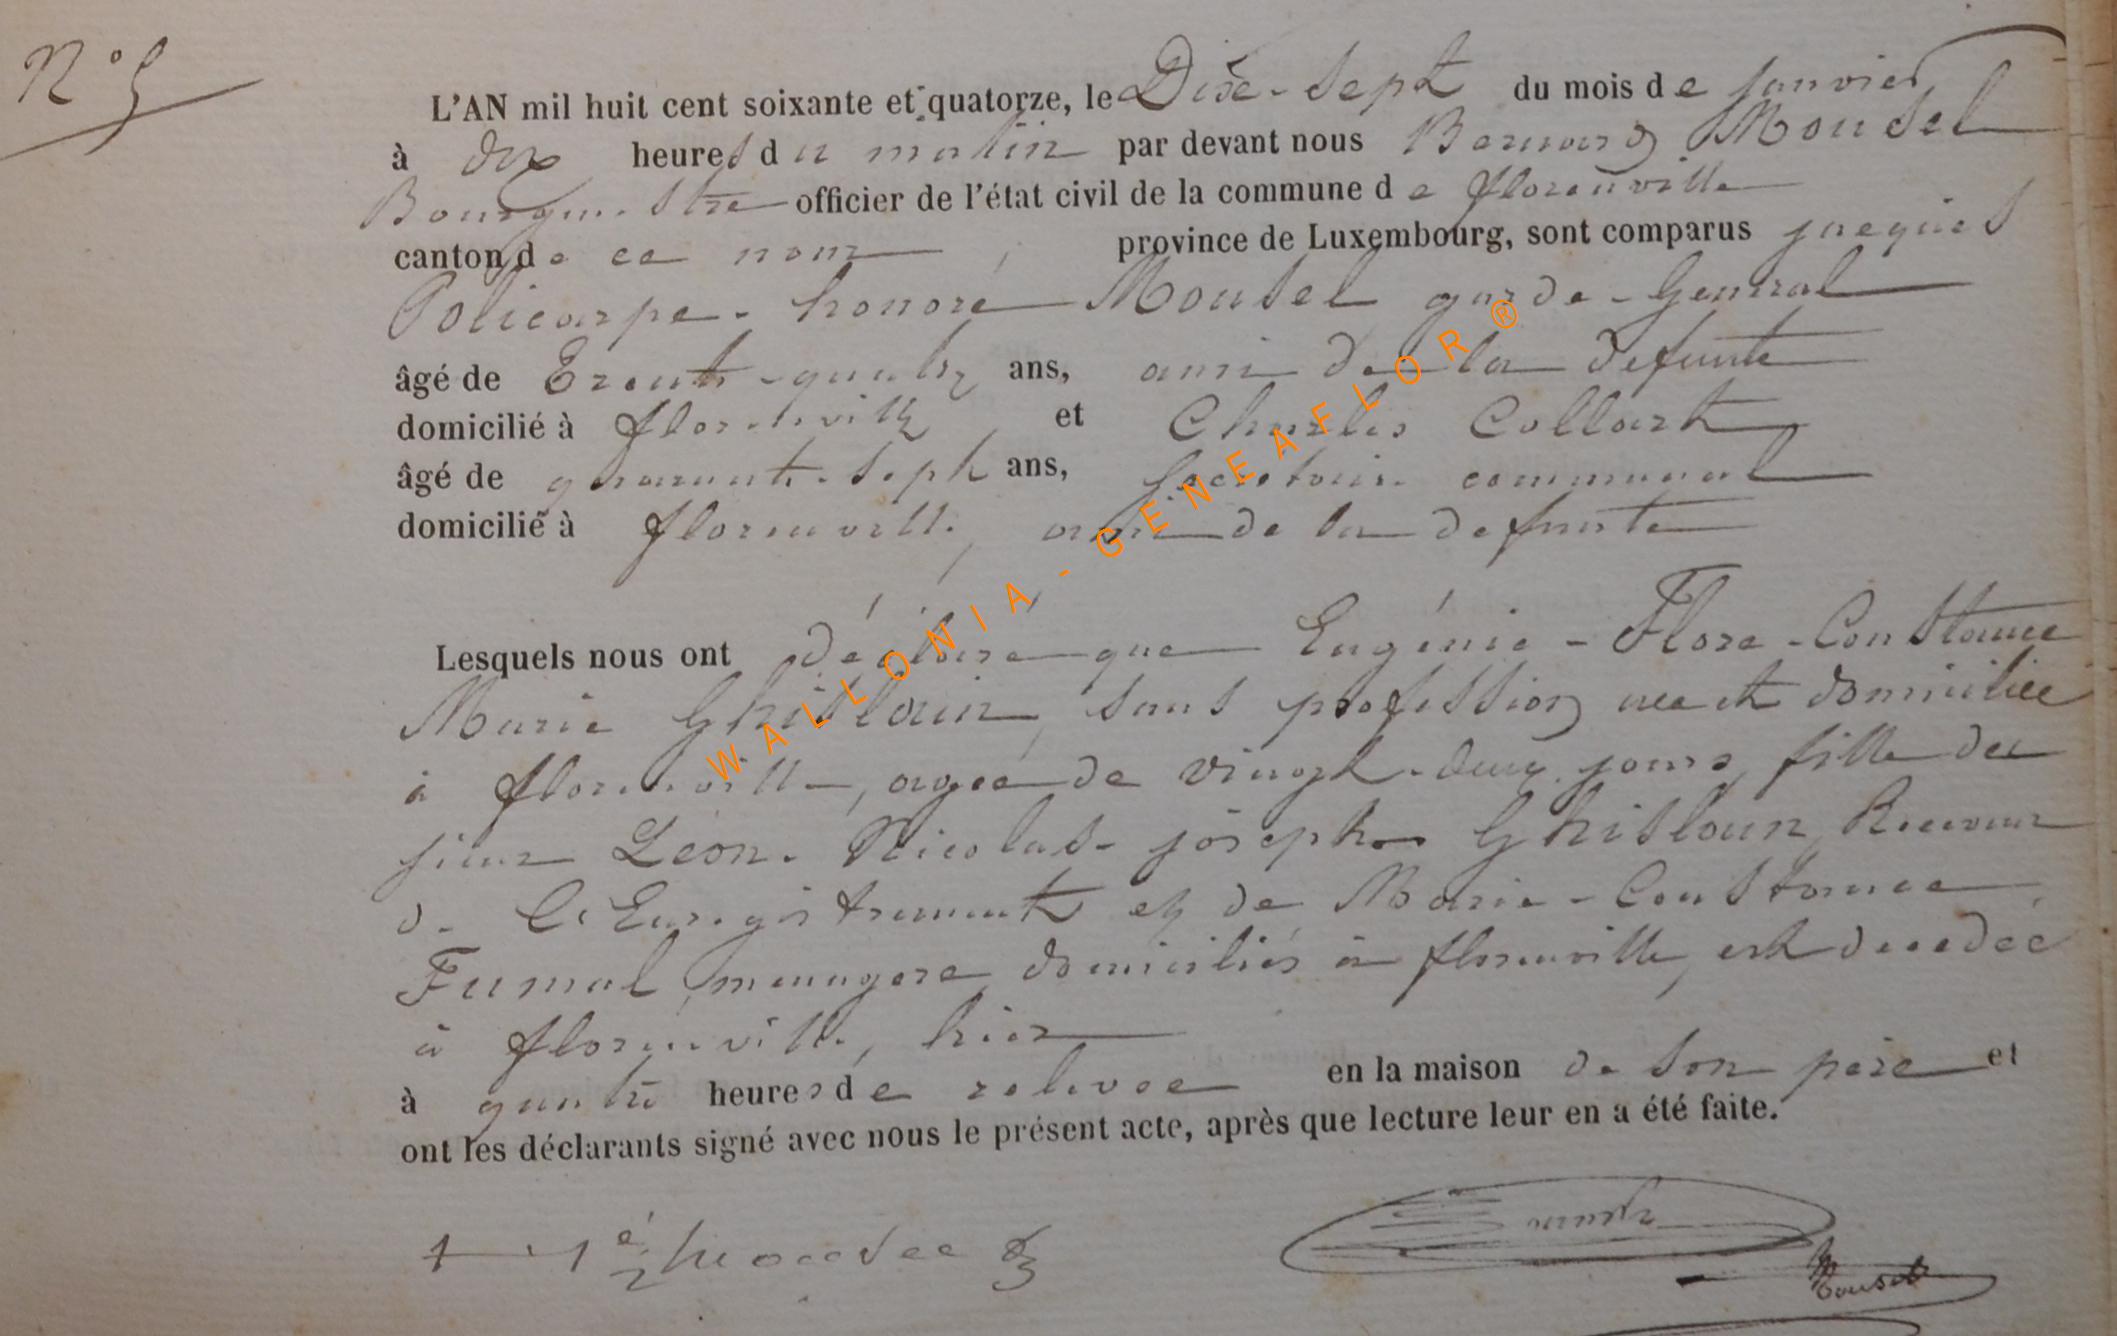 N° 5
L'AN mil huit cent soixante et quatorze, le Dixe-Sept du mois de Janvier
à dix heures du matin par devant nous Bernard Mousel
Bourgmestre officier de l'état civil de la commune de florenville
canton de ce nom, province de Luxembourg, sont comparus jacques
Policarpe-honoré Mousel garde-Général
âgé de Trente-quatre ans, ami de la defunte
domicilié à florenville et Charles Collart
âgé de quarante-sept ans, Secretaire communal
domicilié à florenville, ami de la defunte
Lesquels nous ont déclaré que Eugénie-Flore-Constance
Marie Ghislain, sans profession, née et domiciliée
à florenville, agée de vingt-deux jours, fille du
sieur Léon-Nicolas-joseph Ghislain, Receveur
de l'Enregistrement et de Marie-Constance
Fumal, menagere, domiciliés à florenville, est decedée
à florenville, hier
à quatre heures de relevee en la maison de son père et
ont les déclarants signé avec nous le présent acte, après que lecture leur en a été faite.
Mousel
WALLONIA-GENEAFLOR®